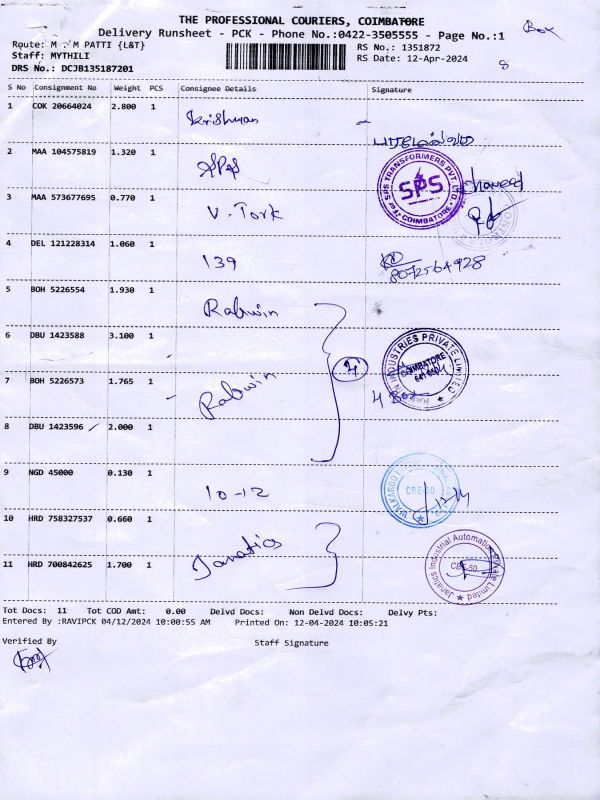 THE PROFESSIONAL COURIERS, COIMBATORE
Delivery Runsheet - PCK - Phone No.:0422-3505555 - Page No.:1
Box
Route: M PATTI {L&T}
RS No.: 1351872
Staff: MYTHILI
RS Date: 12-Apr-2024
8
DRS No.: DCJB135187201
S No Consignment No Weight PCS Consignee Details Signature
1 COK 20664024 2.800 1
2 MAA 104575819 1.320 1 SPS
SPS TRANSFORMERS PVT. LTD. SPS COIMBATORE
3 MAA 573677695 0.770 1 V. Tork
4 DEL 121228314 1.060 1 139
8072564928
5 BOH 5226554 1.930 1 Rabwin
6 DBU 1423588 3.100 1
INDUSTRIES PRIVATE LIMITED COIMBATORE
4
7 BOH 5226573 1.765 1 Rabwin
4 Box
8 DBU 1423596 2.000 1
9 NGD 45000 0.130 1 10-12
CBE-50
10 HRD 758327537 0.660 1 Janatics
11 HRD 700842625 1.700 1
Janatics Industrial Automation Private Limited CBE-50
Tot Docs: 11 Tot COD Amt: 0.00 Delvd Docs: Non Delvd Docs: Delvy Pts:
Entered By :RAVIPCK 04/12/2024 10:00:55 AM Printed On: 12-04-2024 10:05:21
Verified By Staff Signature